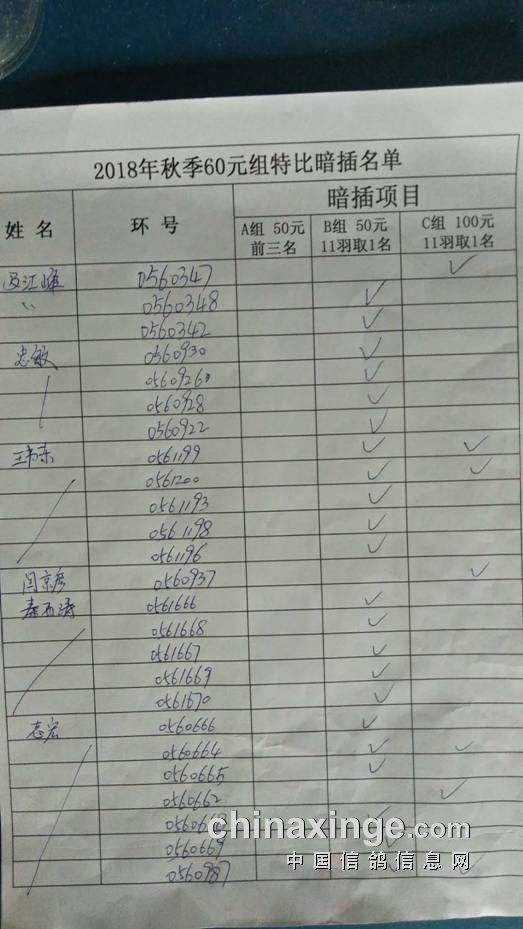 2018年秋季60元组特比暗插名单
姓 名 环 号 暗插项目
A组 50元 前三名 B组 50元 11羽取1名 C组 100元 11羽取1名
0560347 ✓
〃 0560348 ✓
0560342 ✓
忠敏 0560930 ✓
0560926 ✓
0560928 ✓
0560922 ✓
0561199 ✓ ✓
0561200 ✓ ✓
0561193 ✓
0561198 ✓
0561196 ✓
闫京彦 0560937 ✓
0561666 ✓
0561668 ✓
0561667 ✓
0561669 ✓
0561670 ✓
志宏 0560666 ✓
0560664 ✓ ✓
0560665 ✓
0560662 ✓
0560669
0560987
chinaxinge.com
中国信鸽信息网